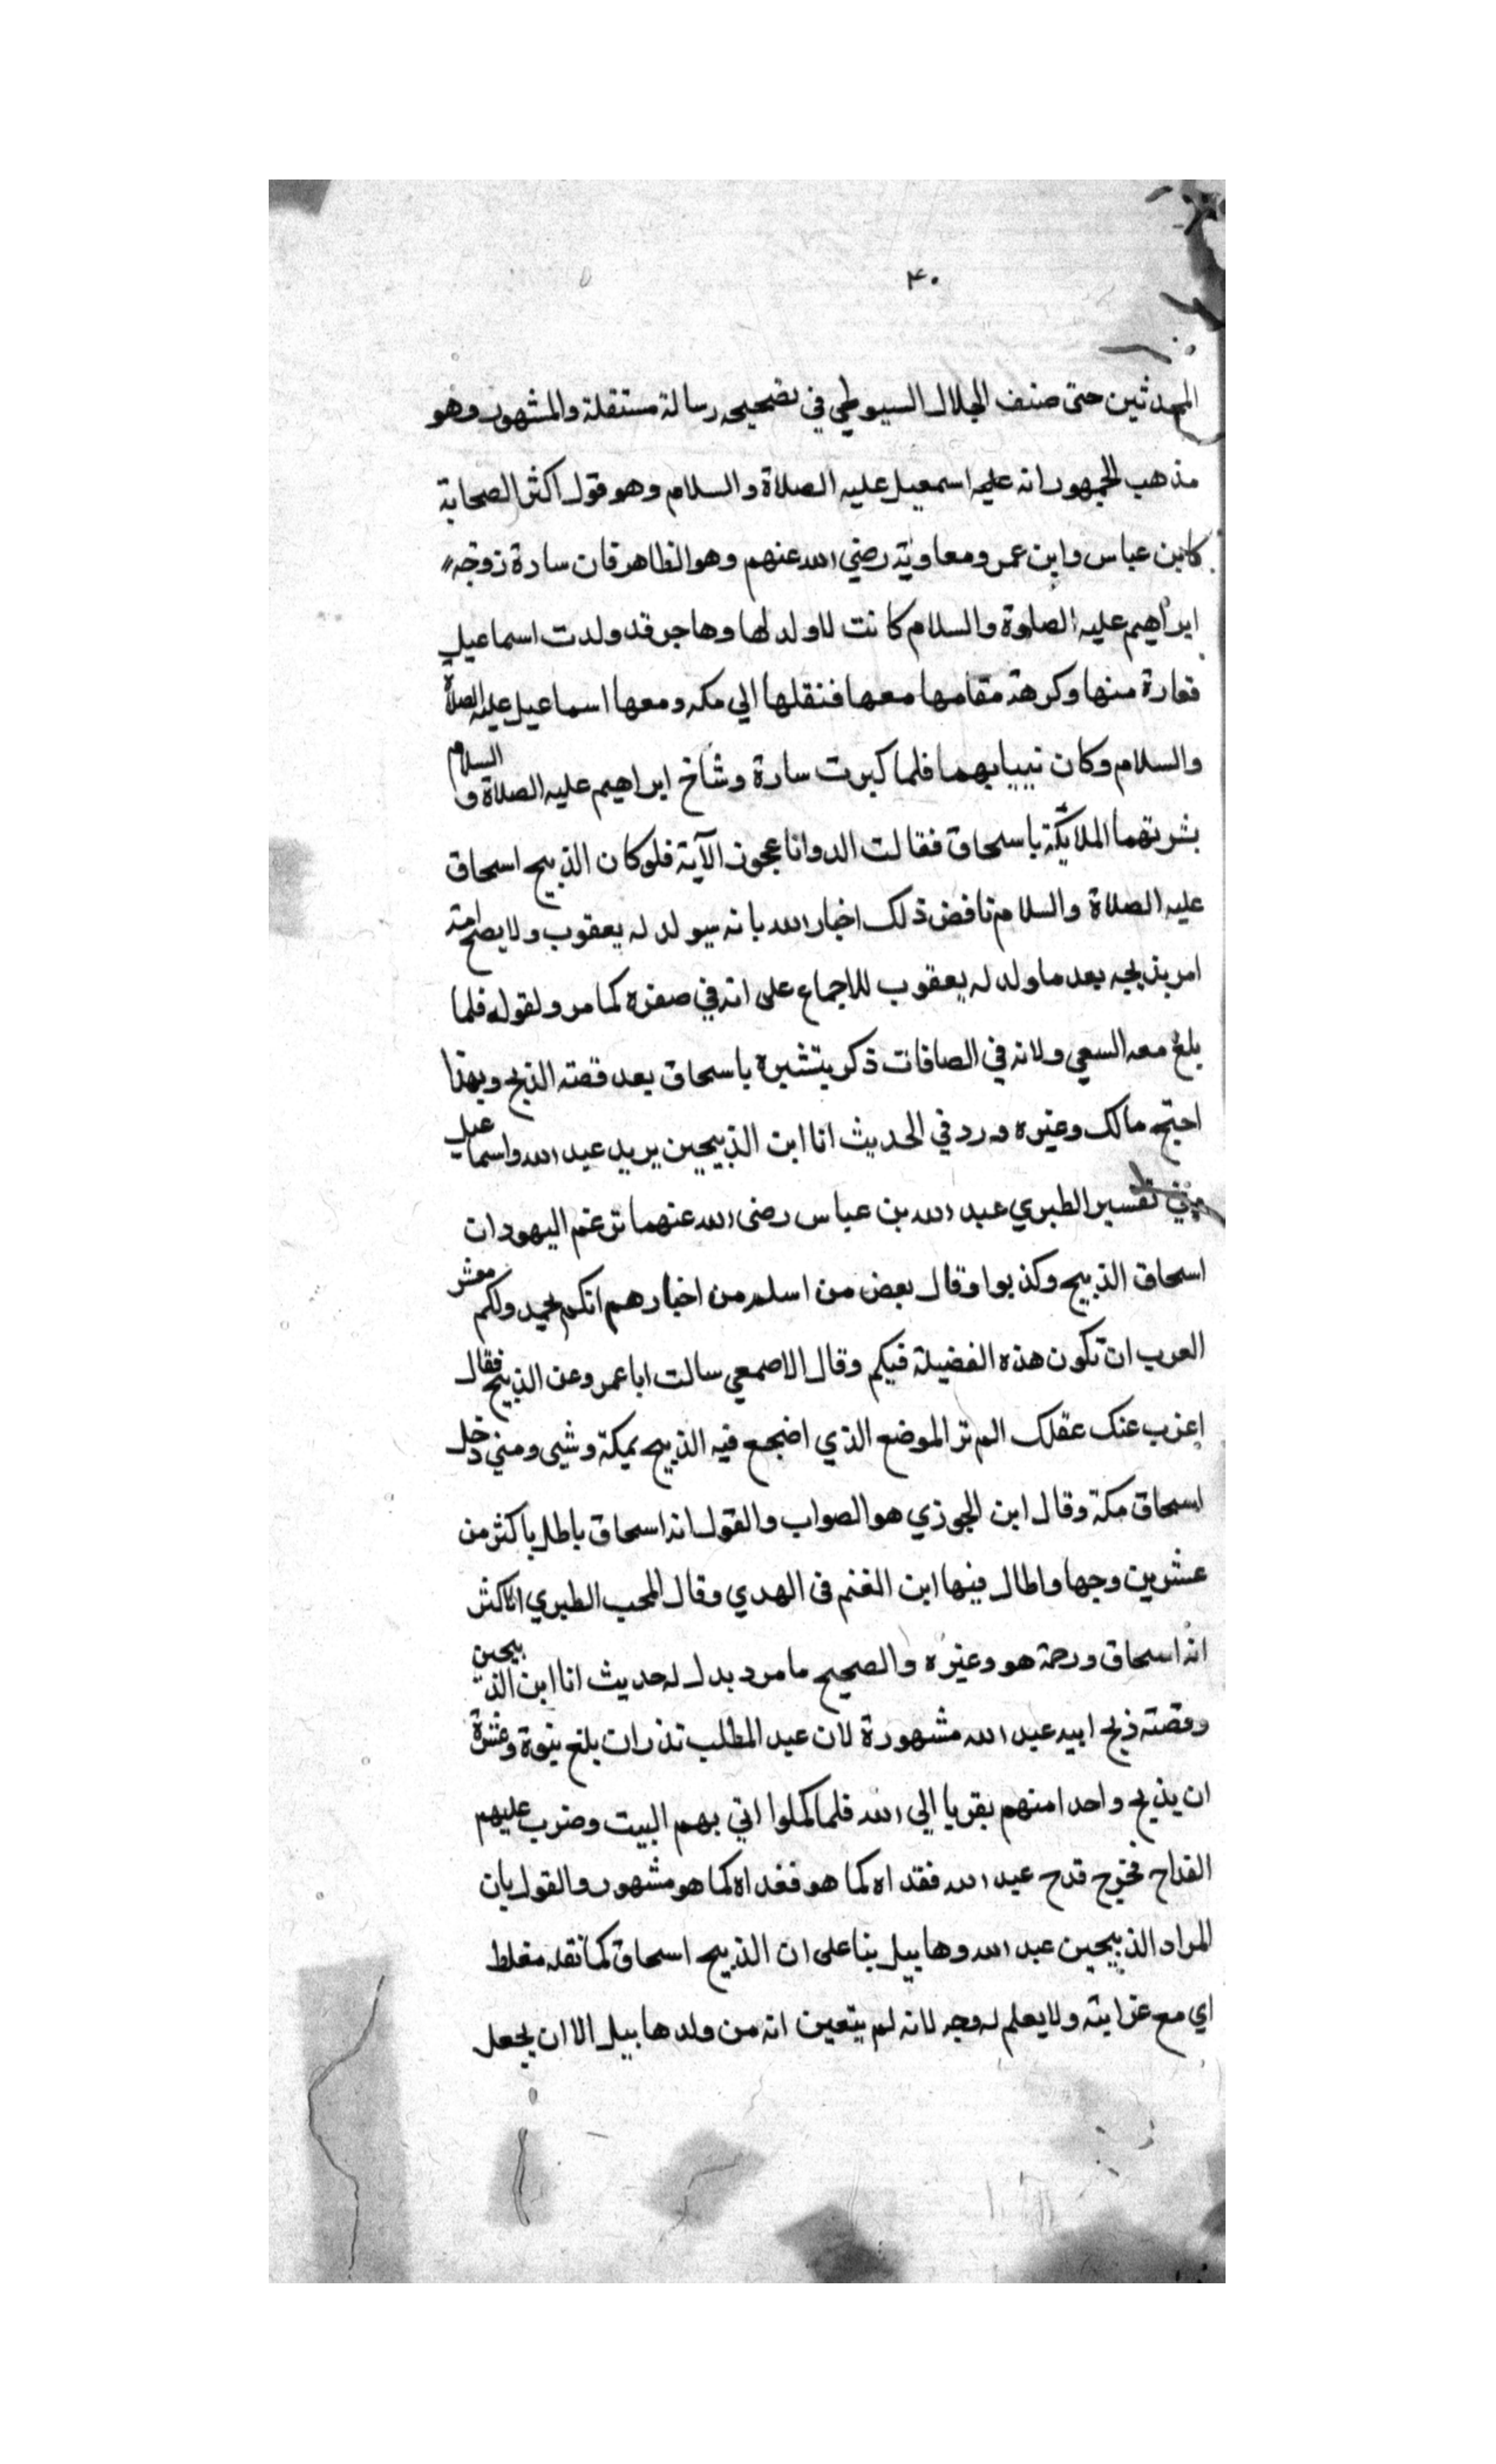 ٤٠
المحدثين حتى صنف الجلال السيوطي في تصحيحه رسالة مستقلة والمشهور وهو
مذهب الجمهور انه عليه اسمعيل عليه الصلاة والسلام وهو قول اكثر الصحابة
كابن عباس وابن عمر ومعاوية رضي الله عنهم وهو الظاهر فان سارة زوجة
ابراهيم عليه الصلوة والسلام كانت لاولد لها وهاجر قد ولدت اسماعيل
فغارة منها وكرهة مقامها معها فنقلها الي مكه ومعها اسماعيل عليه الصلاة
والسلام وكان نبيا بهما فلما كبرت سارة وشاخ ابراهيم عليه الصلاة و السلام
بشرتهما الملايكة باسحاق فقالت الد وانا عجوز الآية فلو كان الذبيح اسحاق
عليه الصلاة والسلام ناقض ذلك اخبار الله بانه سيولد له يعقوب ولا يصح انه
امر بذبحه بعد ما ولد له يعقوب للاجماع على انه في صغره كما مر ولقوله فلما
بلغ معه السعي ولانه في الصافات ذكر يتشيره باسحاق بعد قصته الذبح وبهذا
احتج مالك وغيره ورد في الحديث انا ابن الذبيحين يريد عبد الله واسماعيل
وفي تفسير الطبري عبد الله بن عباس رضى الله عنهما تزعم اليهود ان
اسحاق الذبيح وكذبوا وقال بعض من اسلم من اخبارهم انكم ولكم معشر
العرب ان تكون هذه الفضيلة فيكم وقال الاصمعي سالت ابا عمرو عن الذبيح فقال
اعزب عنك عقلك الم تر الموضع الذي اضجع فيه الذبيح بمكة وشيى ومني دخل
اسحاق مكة وقال ابن الجوزي هو الصواب والقول انه اسحاق باطل باكثر من
عشرين وجها واطال فيها ابن الغنم في الهدي وقال المحب الطبري الاكثر
انه اسحاق ورحمة هو وغيره والصحيح ما مر ويدل له حديث انا ابن الذبيحين
وقصته ذبح ابيه عبد الله مشهورة لان عبد المطلب نذر ان بلغ بنوة وعشرة
ان يذبح واحدا منهم بقربا الي الله فلما كملوا اتي بهم البيت وضرب عليهم
القداح فخرج قدح عبد الله فقداه كما هو فغداه كما هو مشهور والقول بان
المراد الذبيحين عبد الله وهابيل بنا على ان الذبيح اسحاق كما نقله مغلط
اي مع غرايته ولا يعلم له وجه لانه لم يتعين انه من ولد هابيل الا ان يجعل